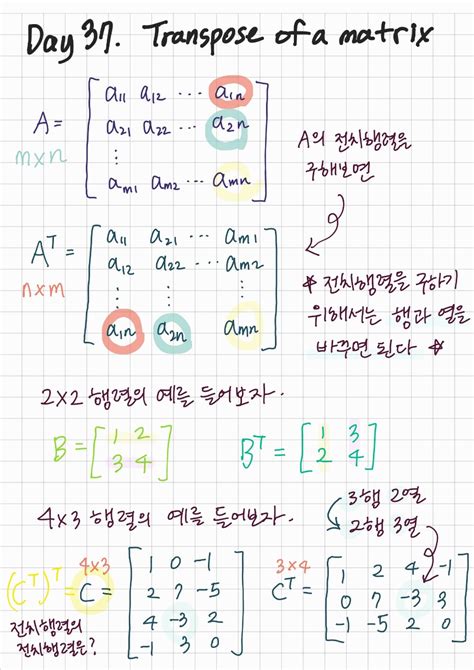 Day 37. Transpose of a matrix
A = [ a11 a12 ⋯ a1n
a21 a22 ⋯ a2n
⋮
am1 am2 ⋯ amn ]
m×n
A의 전치행렬을
구해보면
A^T = [ a11 a21 ⋯ am1
a12 a22 ⋯ am2
⋮ ⋮ ⋮
a1n a2n amn ]
n×m
☆ 전치행렬을 구하기
위해서는 행과 열을
바꾸면 된다 ☆
2×2 행렬의 예를 들어보자.
B = [ 1 2
3 4 ]
B^T = [ 1 3
2 4 ]
4×3 행렬의 예를 들어보자.
3행 2열
2행 3열
4×3
(C^T)^T = C = [ 1 0 -1
2 7 -5
4 -3 2
-1 3 0 ]
전치행렬의
전치행렬은?
3×4
C^T = [ 1 2 4 -1
0 7 -3 3
-1 -5 2 0 ]